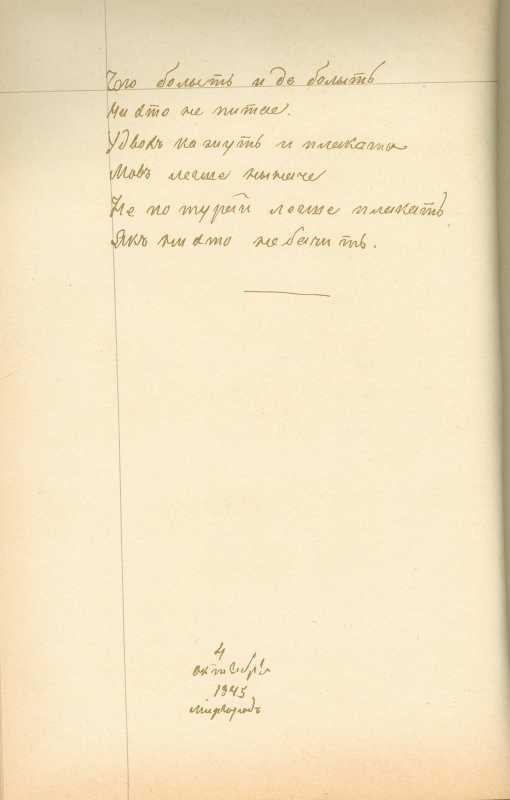 Що болыть и де болыть
Ни хто не питае.
Удвохъ кажуть и плакаты
Мовъ легше неначе
Не потурай легше плакать
Якъ ни хто не бачить.
4
октября
1845
Миргородъ